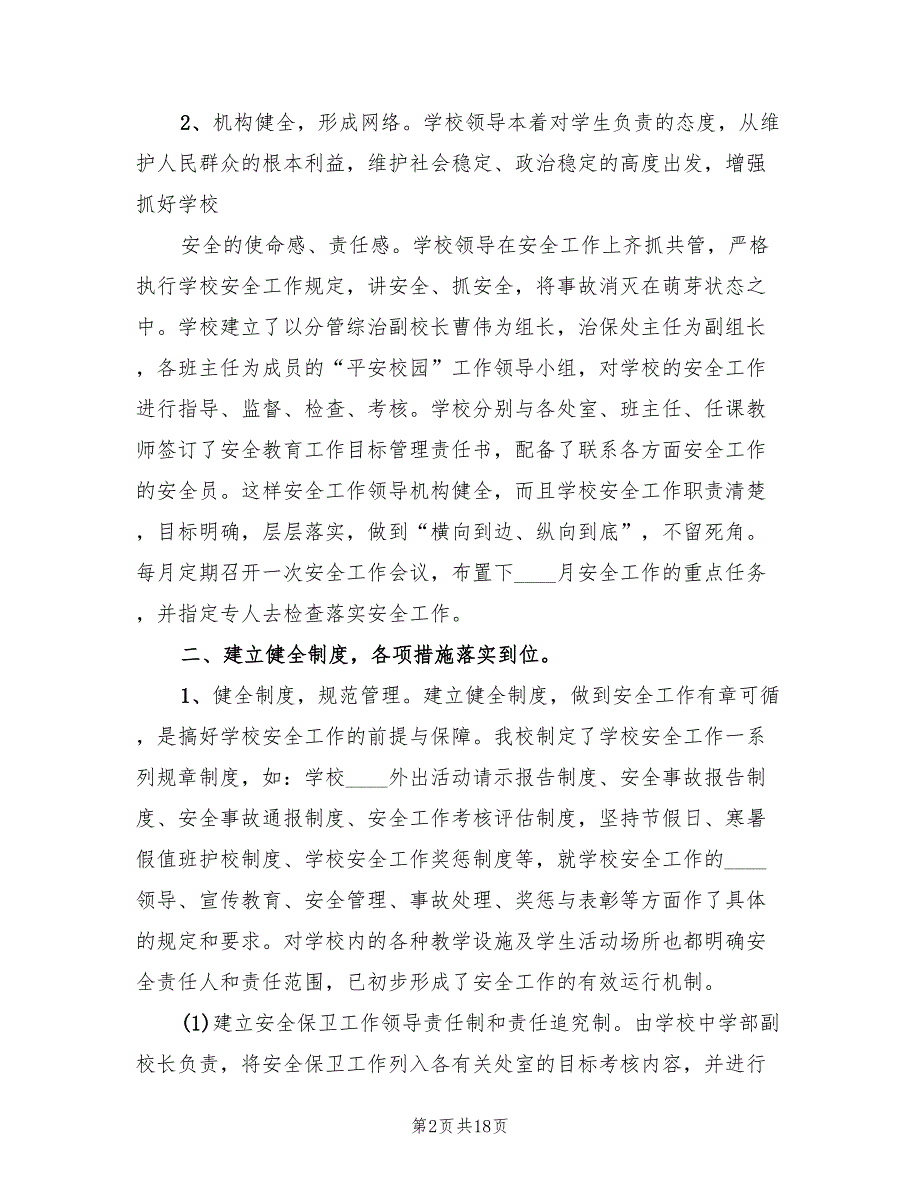 2、机构健全，形成网络。学校领导本着对学生负责的态度，从维
护人民群众的根本利益，维护社会稳定、政治稳定的高度出发，增强
抓好学校
安全的使命感、责任感。学校领导在安全工作上齐抓共管，严格
执行学校安全工作规定，讲安全、抓安全，将事故消灭在萌芽状态之
中。学校建立了以分管综治副校长曹伟为组长，治保处主任为副组长
，各班主任为成员的“平安校园”工作领导小组，对学校的安全工作
进行指导、监督、检查、考核。学校分别与各处室、班主任、任课教
师签订了安全教育工作目标管理责任书，配备了联系各方面安全工作
的安全员。这样安全工作领导机构健全，而且学校安全工作职责清楚
，目标明确，层层落实，做到“横向到边、纵向到底”，不留死角。
每月定期召开一次安全工作会议，布置下____月安全工作的重点任务
，并指定专人去检查落实安全工作。
二、建立健全制度，各项措施落实到位。
1、健全制度，规范管理。建立健全制度，做到安全工作有章可循
，是搞好学校安全工作的前提与保障。我校制定了学校安全工作一系
列规章制度，如：学校____外出活动请示报告制度、安全事故报告制
度、安全事故通报制度、安全工作考核评估制度，坚持节假日、寒暑
假值班护校制度、学校安全工作奖惩制度等，就学校安全工作的____
领导、宣传教育、安全管理、事故处理、奖惩与表彰等方面作了具体
的规定和要求。对学校内的各种教学设施及学生活动场所也都明确安
全责任人和责任范围，已初步形成了安全工作的有效运行机制。
(1)建立安全保卫工作领导责任制和责任追究制。由学校中学部副
校长负责，将安全保卫工作列入各有关处室的目标考核内容，并进行
第2页共18页